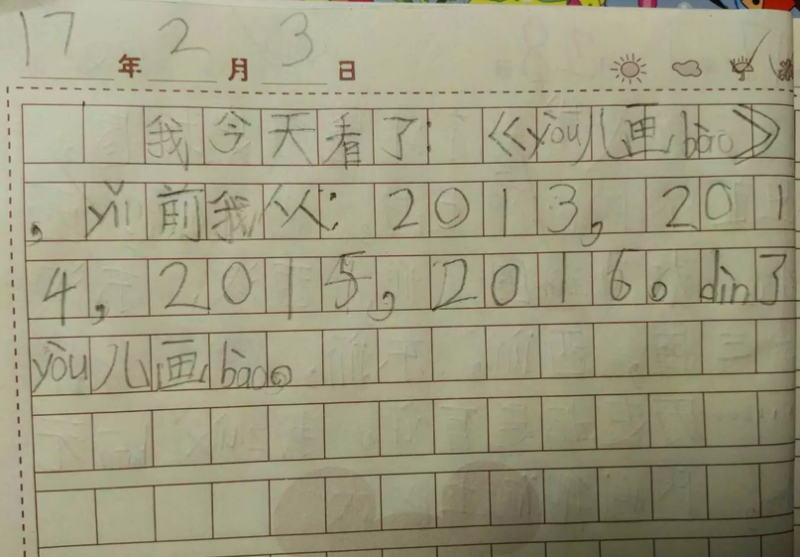 17年2月3日
我今天看了:《yòu儿画bào》
,yǐ前我从:2013,201
4,2015,2016。dìn了
yòu儿画bào。